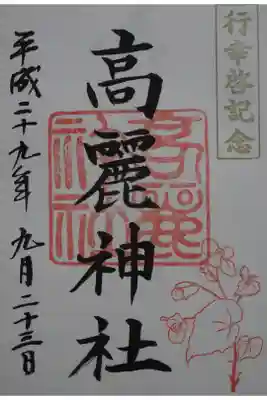 行幸啓記念
高麗神社
平成二十九年 九月二十三日